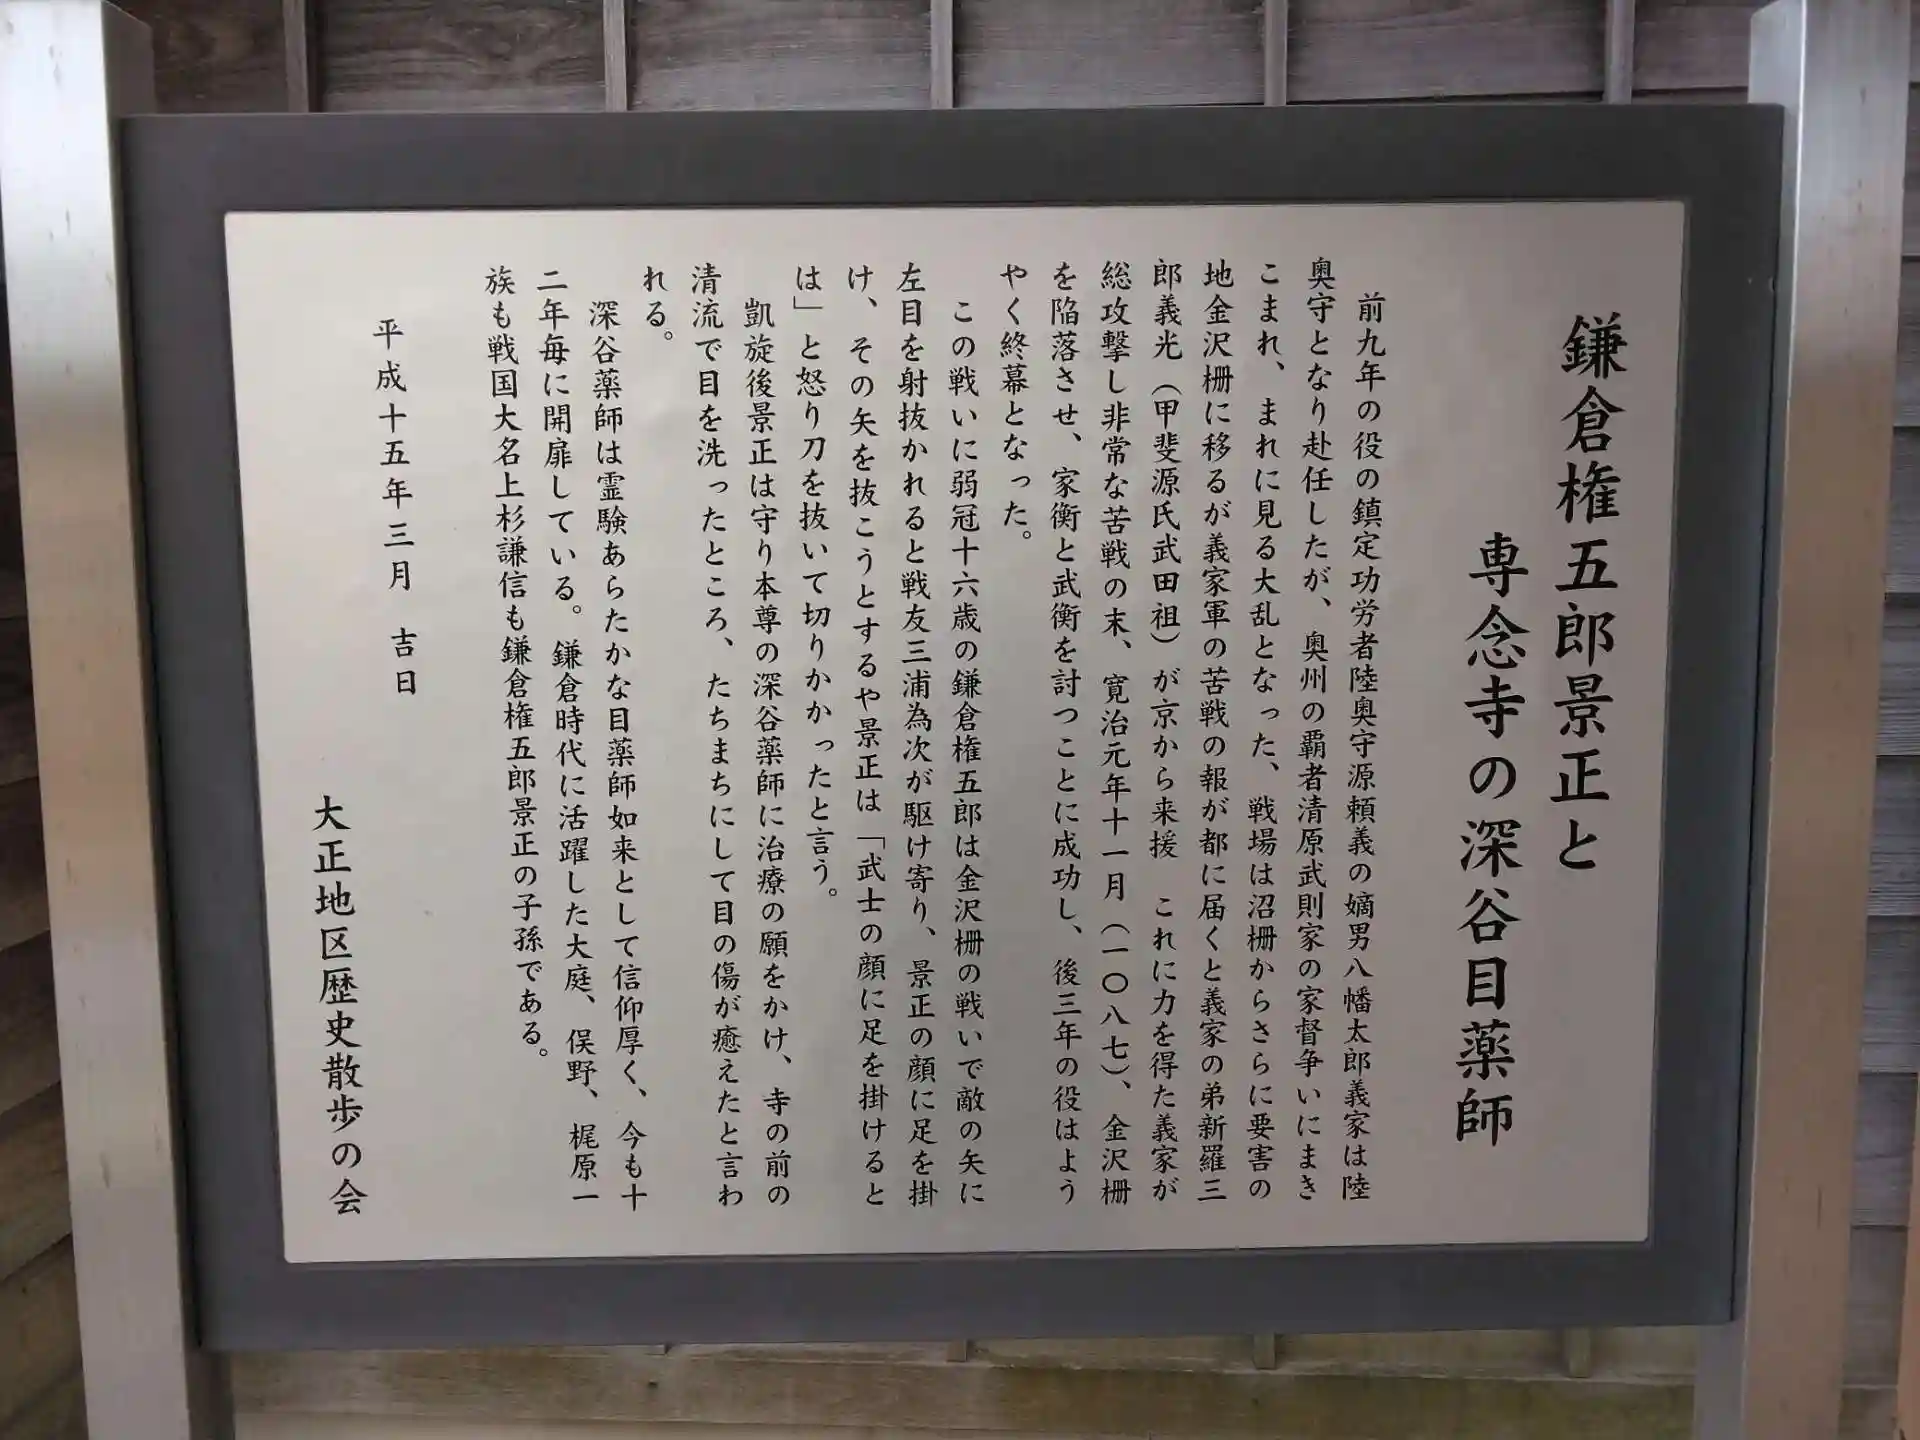 鎌倉権五郎景正と
専念寺の深谷目薬師
前九年の役の鎮定功労者陸奥守源頼義の嫡男八幡太郎義家は陸
奥守となり赴任したが、奥州の覇者清原武則家の家督争いにまき
こまれ、まれに見る大乱となった、戦場は沼柵からさらに要害の
地金沢柵に移るが義家軍の苦戦の報が都に届くと義家の弟新羅三
郎義光（甲斐源氏武田祖）が京から来援　これに力を得た義家が
総攻撃し非常な苦戦の末、寛治元年十一月（一〇八七）、金沢柵
を陥落させ、家衡と武衡を討つことに成功し、後三年の役はよう
やく終幕となった。
この戦いに弱冠十六歳の鎌倉権五郎は金沢柵の戦いで敵の矢に
左目を射抜かれると戦友三浦為次が駆け寄り、景正の顔に足を掛
け、その矢を抜こうとするや景正は「武士の顔に足を掛けると
は」と怒り刀を抜いて切りかかったと言う。
凱旋後景正は守り本尊の深谷薬師に治療の願をかけ、寺の前の
清流で目を洗ったところ、たちまちにして目の傷が癒えたと言わ
れる。
深谷薬師は霊験あらたかな目薬師如来として信仰厚く、今も十
二年毎に開扉している。鎌倉時代に活躍した大庭、俣野、梶原一
族も戦国大名上杉謙信も鎌倉権五郎景正の子孫である。
平成十五年三月　吉日
大正地区歴史散歩の会